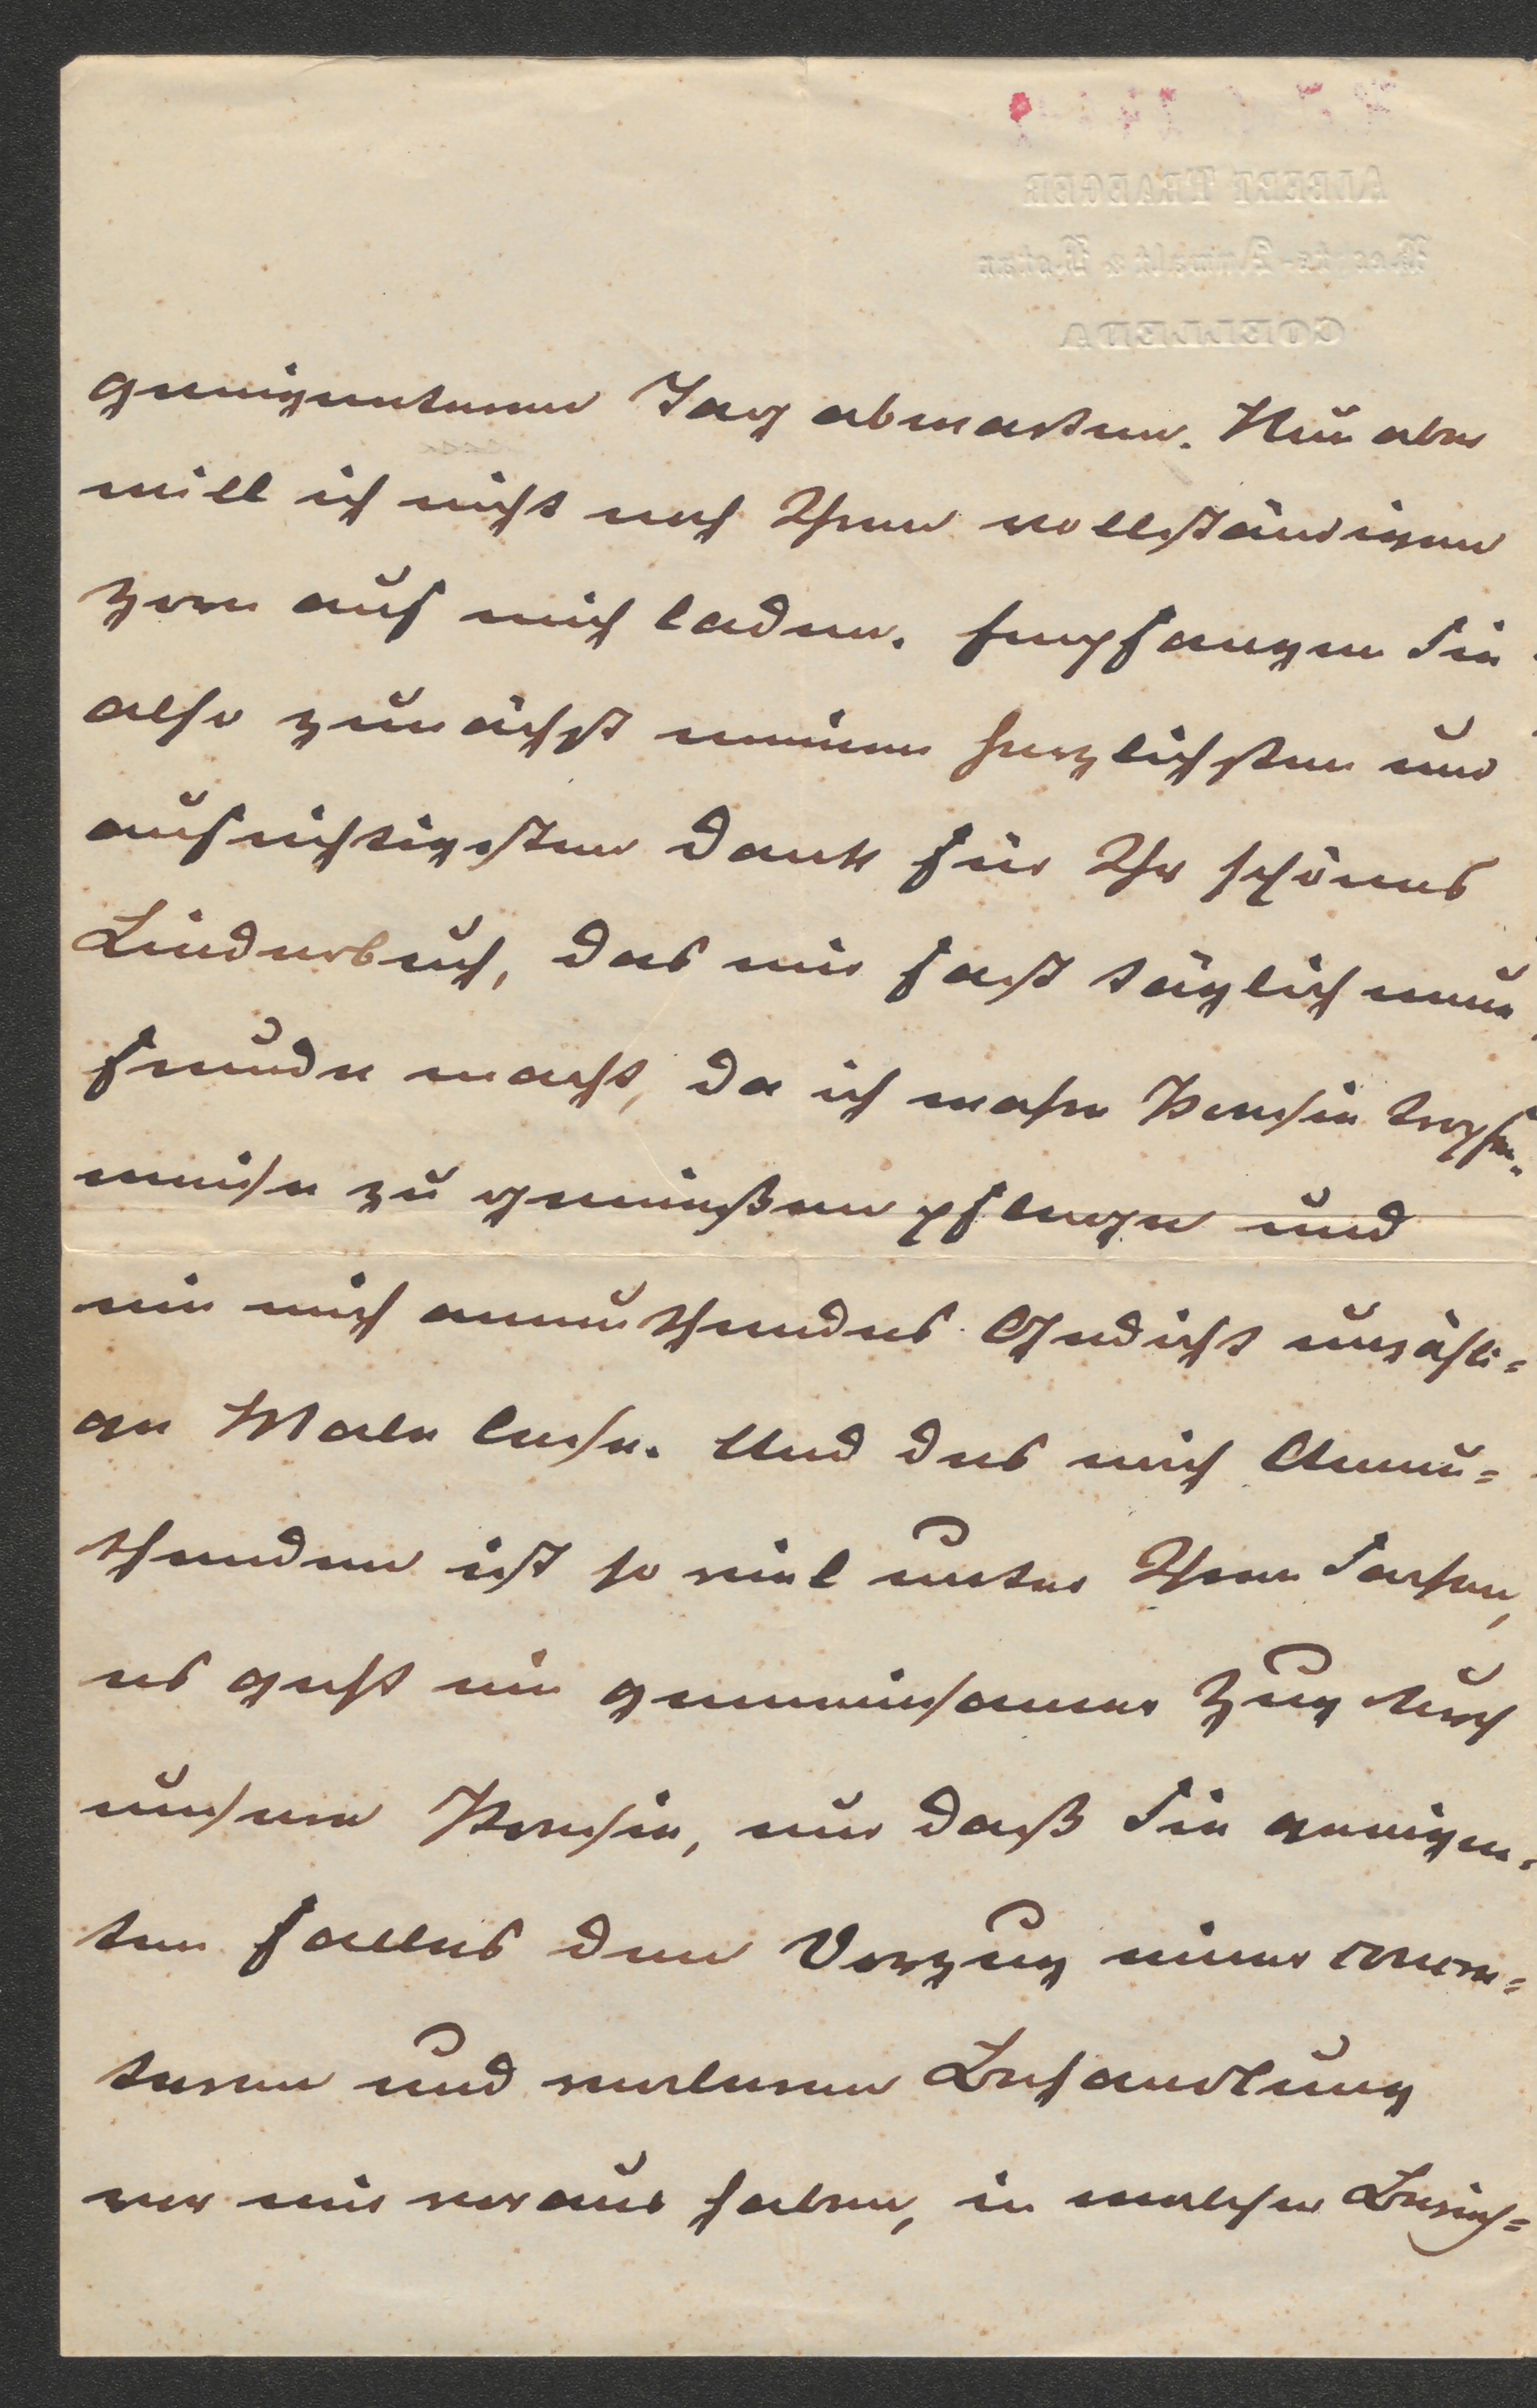 ALBERT TRAEGER
Rechts-Anwalt & Notar
COELLEDA
geeigneteren Tag abwarten. Nun aber
will ich nicht noch Ihren vollständigen
Zorn auf mich laden. Empfangen Sie
also zunächst meinen herzlichsten und
aufrichtigsten Dank für Ihr schönes
Liederbuch, das mir fast täglich neue
Freude macht, da ich wahre Poesie tropfen-
weise zu genießen pflege und
ein mich anmuthendes Gedicht unzähli=
ge Male lese. Und des mich Anmu=
thenden ist so viel unter Ihren Sachen,
es geht ein gemeinsamer Zug durch
unsere Poesie, nur daß Sie geeigne-
ten Falles den Vorzug einer
und Behandlung
vor mir voraus haben, in welcher Bezieh=